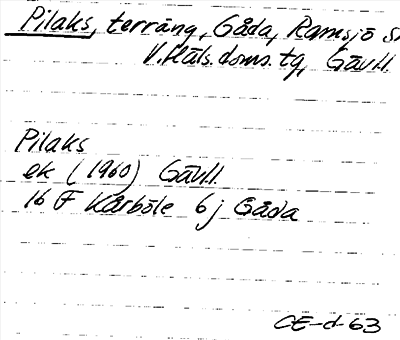 Pilaks, terräng, Gåda, Ramsjö s
V. Häls. doms. tg, Gävl.
Pilaks
ek (1960) Gävl.
16 F Kårböle 6 j Gåda
CE-d-63